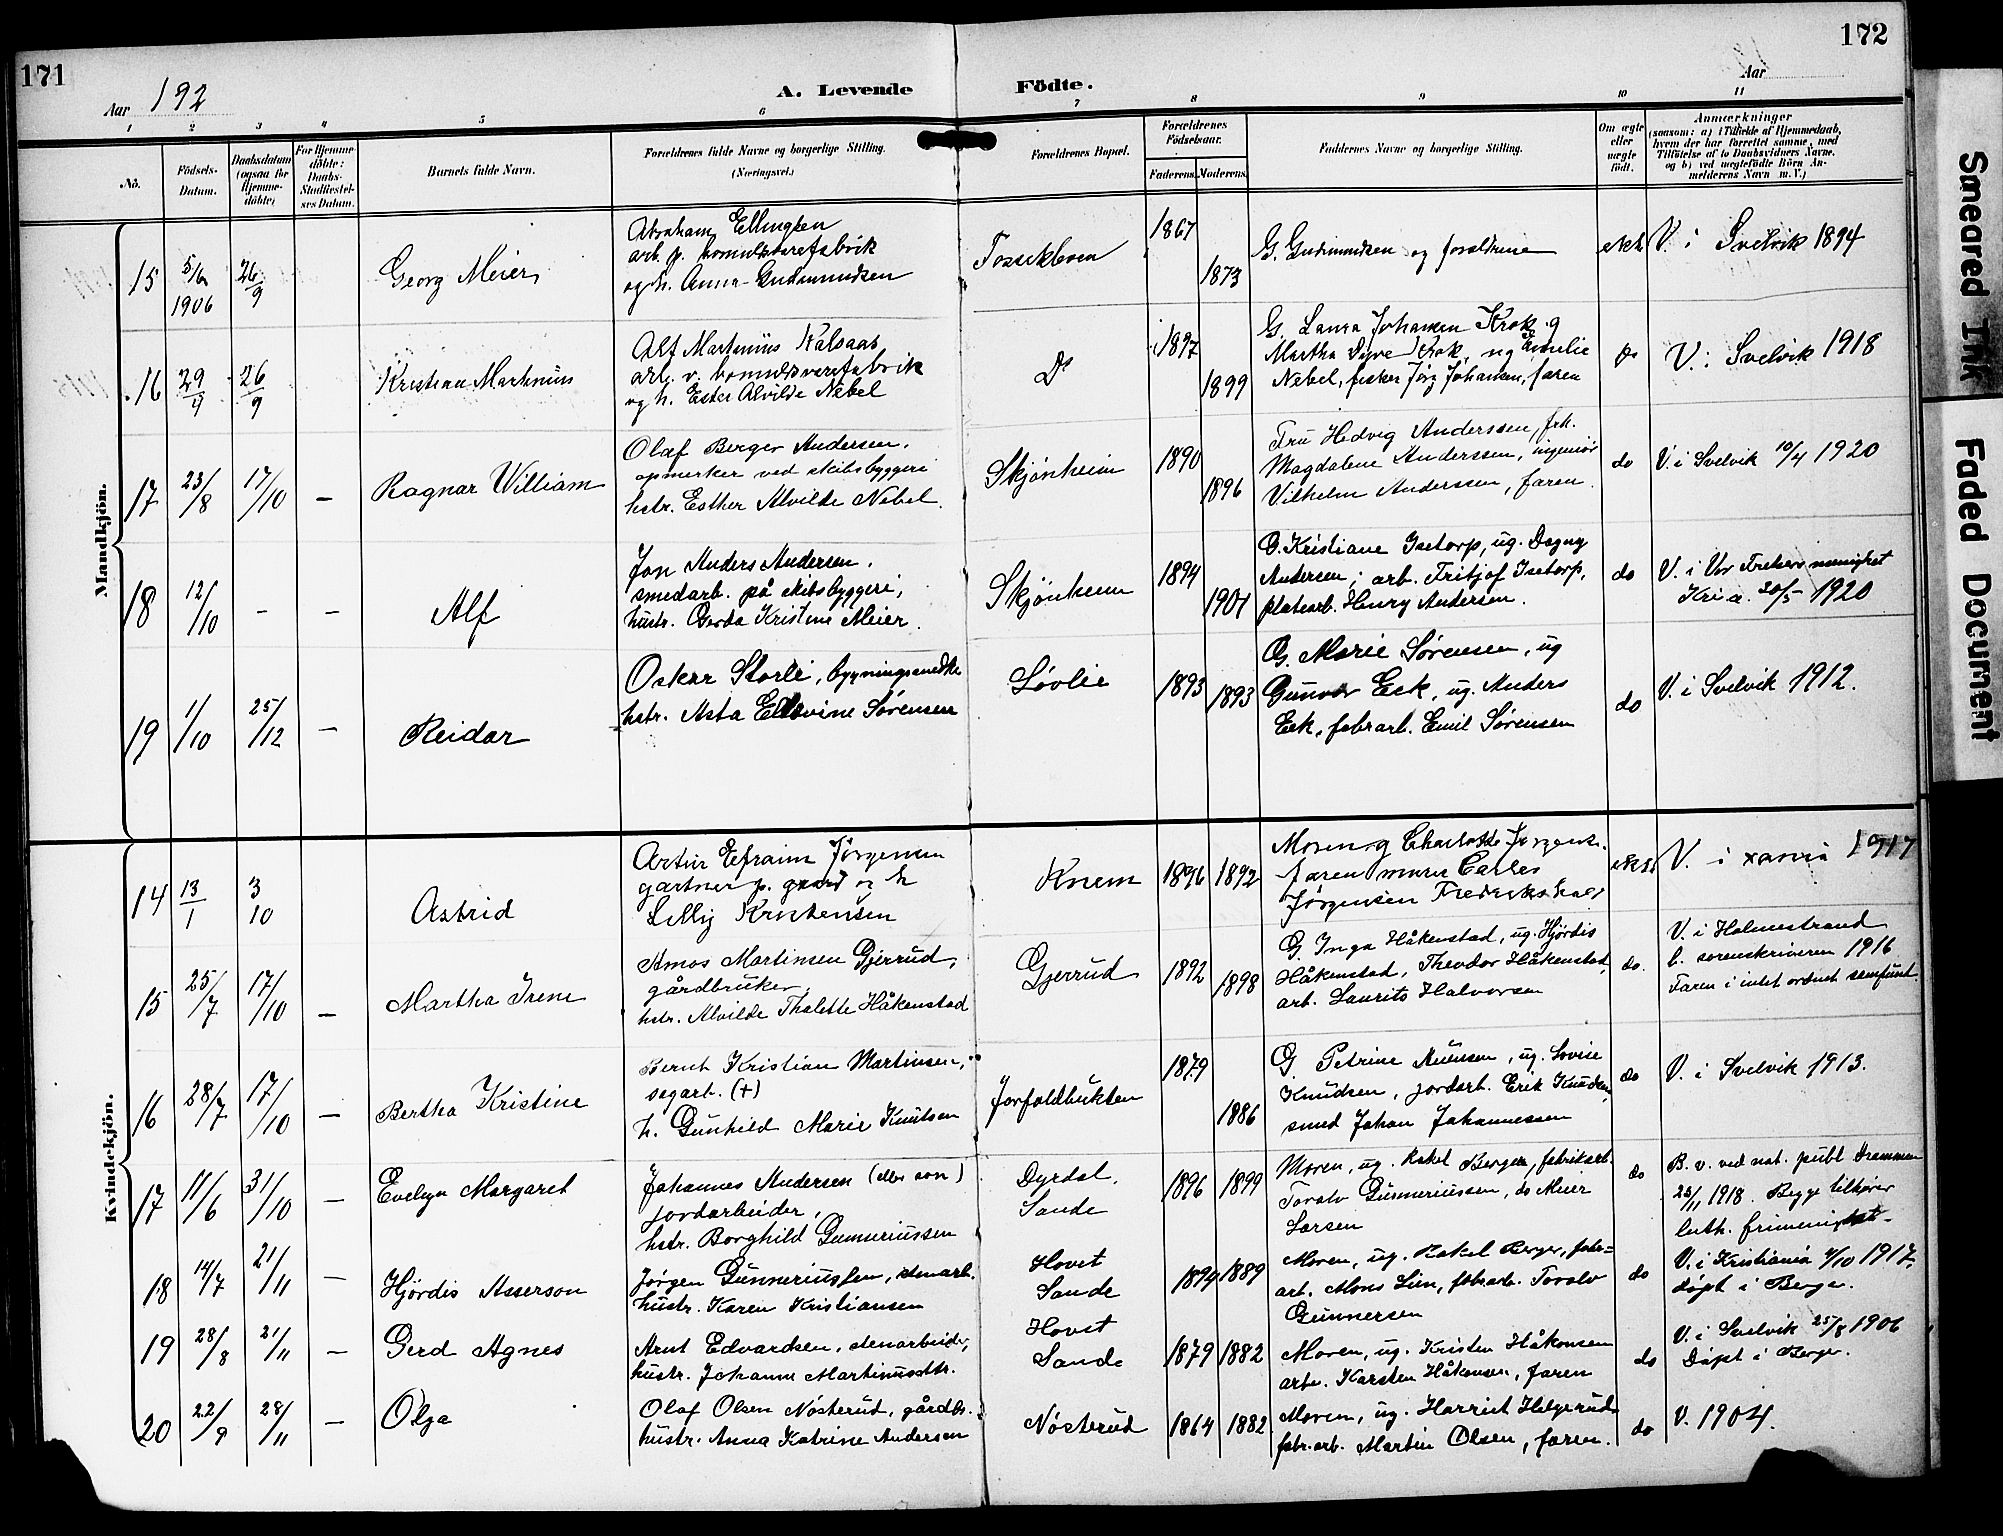 171
172
Aar 192
A. Levende
Födte.
Aar
1 2 3 4 5 6 7 8 9 10 11
No.
Födsels-
Datum.
Daabsdatum
(ogsaa for
Hjemme-
döbte)
For Hjemme-
döbte:
Daabs-
Stadfæstel-
ses Datum.
Barnets fulde Navn.
Forældrenes fulde Navne og borgerlige Stilling.
(Næringsvei.)
Forældrenes Bopæl.
Forældrenes
Födselsaar.
Faderens. Moderens.
Faddernes Navne og borgerlige Stilling.
Om ægte
eller
uægte
født.
Anmærkninger
(saasom: a) i Tilfælde af Hjemmedaab,
hvem der har forrettet samme, med
Tilföielse af to Daabsvidners Navne.
og b) ved uægtefödte Börn An-
melderens Navn m. V.)
Mandkjön.
15 5/6 1906 26/9 Georg Meier
Abraham Ellingsen
arb. p. bomuldsvarefabrik
og h. Anna Gudmundsen
Fossekleven 1867 1873
G. Gudmundsen og forældrene
ekte V. i Svelvik 1894
16 29/4 26/9 Kristian Martinius
Alf Martinius Kalsaas
arb. v. bomuldsvarefabrik
og h. Ester Alvilde Nebel
Do 1897 1899
G. Laura Johansen Krok, g
Martha Dyve Krok, ug Amelie
Nebel, fisker Jørg Johansen, faren
do V. i Svelvik 1918
17 23/8 17/10 – Ragnar William
Olaf Berger Andersen,
opmerker ved skibsbyggeri
hstr. Esther Alvilde Nebel.
Skjønheim 1890 1896
Fru Hedvig Anderssen, frk.
Magdalene Anderssen, ingeniør
Vilhelm Anderssen, faren
do V. i Svelvik 10/4 1920
18 12/10 – – Alf
Jon Anders Andersen,
smedarb. på skibsbyggeri,
hustr. Gerda Kristine Meier.
Skjønheim 1894 1901
G. Kristiane Isetorp, ug. Dagny
Andersen; arb. Fritjof Isetorp,
platearb. Henry Andersen.
do V. i Vor Frelsers menighet
Kria. 20/5 1920
19 1/10 25/12 – Reidar
Oskar Storli, bygningssnedker
hstr. Asta Edovine Sørensen
Løvlie 1893 1893
G. Marie Sørensen, ug
Gunvor Eek, ug. Anders
Eek, fabrarb. Emil Sørensen
do V. i Svelvik 1912.
Kvindekjön.
14 13/1 3/10 Astrid
Artur Efraim Jørgensen
gartner p. gaard og h
Lilly Kristensen
Knem 1896 1892
Moren, g Charlotte Jørgens.
faren murer Carlos
Jørgensen Fredrikshald
ekte V. i xania 1917
15 25/7 17/10 – Martha Irene
Amos Martinsen Gjerrud,
gårdbruker,
hstr. Alvilde Thalette Håkenstad
Gjerrud 1892 1898
G Inga Håkenstad, ug. Hjørdis
Håkenstad, Theodor Håkenstad,
arb. Laurits Halvorsen
do. V. i Holmestrand
b. sorenskriveren 1916
Faren i intet ordnet samfund
16 28/7 17/10 – Bertha Kristine
Bernt Kristian Martinsen,
sagarb. (+)
h. Gunhild Marie Knutsen
Jorfaldbukten 1879 1886
G. Petrine Nilensen, ug. Lovise
Knudsen, jordarb. Erik Knudsen,
smed Johan Johannessen
do V. i Svelvik 1913.
17 11/6 31/10 – Evelyn Margaret
Johannes Andersen (eller son)
jordarbeider,
hstr. Borghild Gunneriussen
Dyrdal,
Sande 1896 1899
Moren, ug. Rakel Berger, fabrikarb.
Torolv Gunneriussen, do Meier
Larsen
do B. v. ved not. publ Drammen
23/11 1918. Begge tilhører
luth. frimenighet.
18 14/7 21/11 – Hjördis Asserson
Jørgen Gunneriussen, stenarb.
hustr. Karen Kristiansen
Hovet
Sande 1894 1889
Moren, ug. Rakel Berger, fabr=
arb. Mons Lien, fabrarb. Torolv
Gunnersen
do V. i Kristiania 4/10 1917.
døpt i Berger.
19 28/8 21/11 – Gerd Agnes
Arnt Edvardsen, stenarbeider,
hustr. Johanne Martinusdtr.
Hovet
Sande 1879 1882
Moren, ug. Kristen Håkonsen
arb. Karsten Håkonsen, faren
do V. i Svelvik 25/8 1906
Døpt i Berger.
20 22/9 28/11 – Olga
Olaf Olsen Nøsterud, gårdbr.
hustr. Anna Katrine Andersen
Nøsterud 1864 1882
Moren, ug. Harriet Helgerud
fabr.arb. Martin Olsen, faren.
do V. 1904.
Smeared Ink
Faded Document